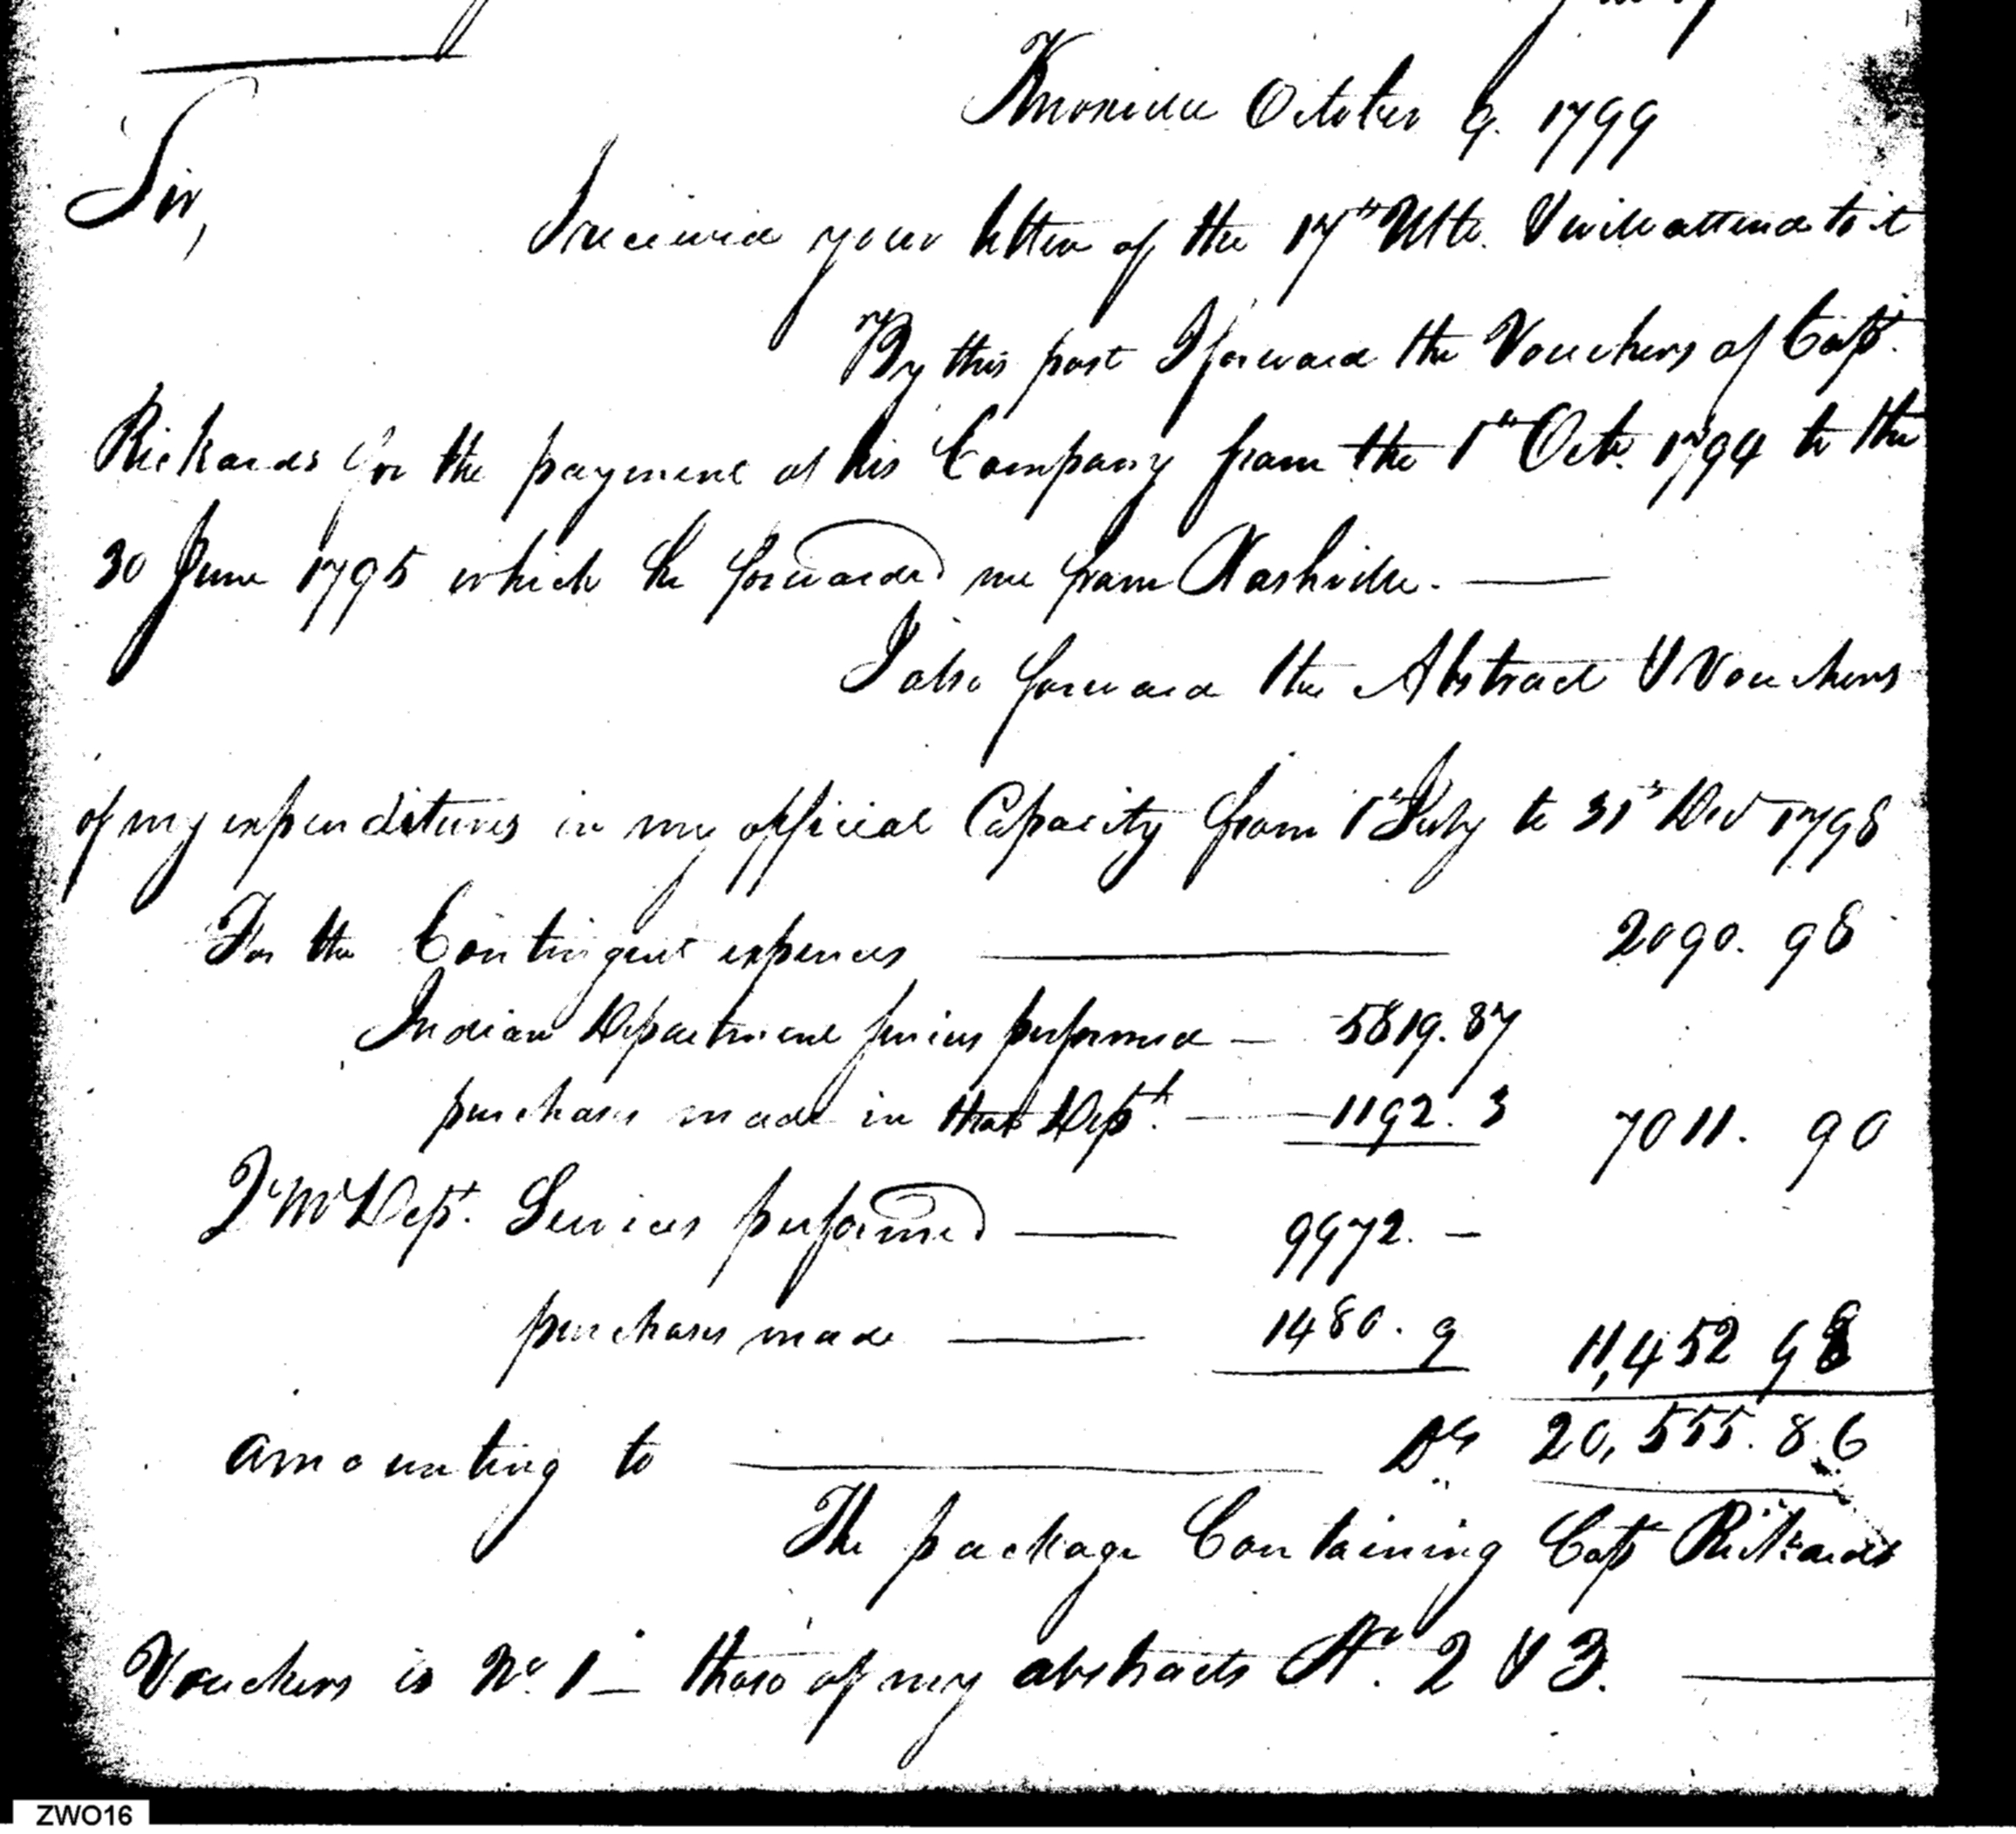 Knoxville October 9. 1799
Sir,
I received your letter of the 17th Ulto. & will attend to it
By this post I forward the Vouchers of Capt.
Rickards for the payment of his Company from the 1st Octo. 1794 to the
30 June 1795 which he forwarded me from Nashville. —
I also forward the Abstract & Vouchers
of my expenditures in my official Capacity from 1st July to 31st Decr 1798
For the Contingent expences — 2090. 98
Indian Department services performed — 5819. 87
purchases made in that Dept. — 1192. 3 7011. 90
Q. Mr Dept. Services performed — 9972. —
purchases made — 1480. 9 11,452 98
amounting to — Drs 20,555. 86
The package Containing Capt Rickards
Vouchers is No. 1 — those of my abstracts No. 2 & 3. —
ZWO16